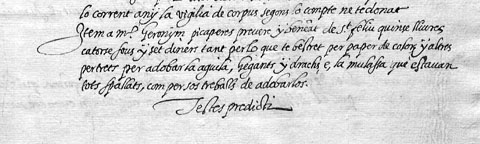 lo corrent any la vigilia de corpus segons lo compte ne te donat
Item a mº Geronym picaperes prevere y beneat de St. feliu quinse lliures
catorse sous y set diners tant per lo que te bestret per paper de colors y altres
pertrets per adobar la aguila, gegants y drachs e, la mulassa que estavan
tots spallats, com per sos treballs de adobarlos.
Testes predicti